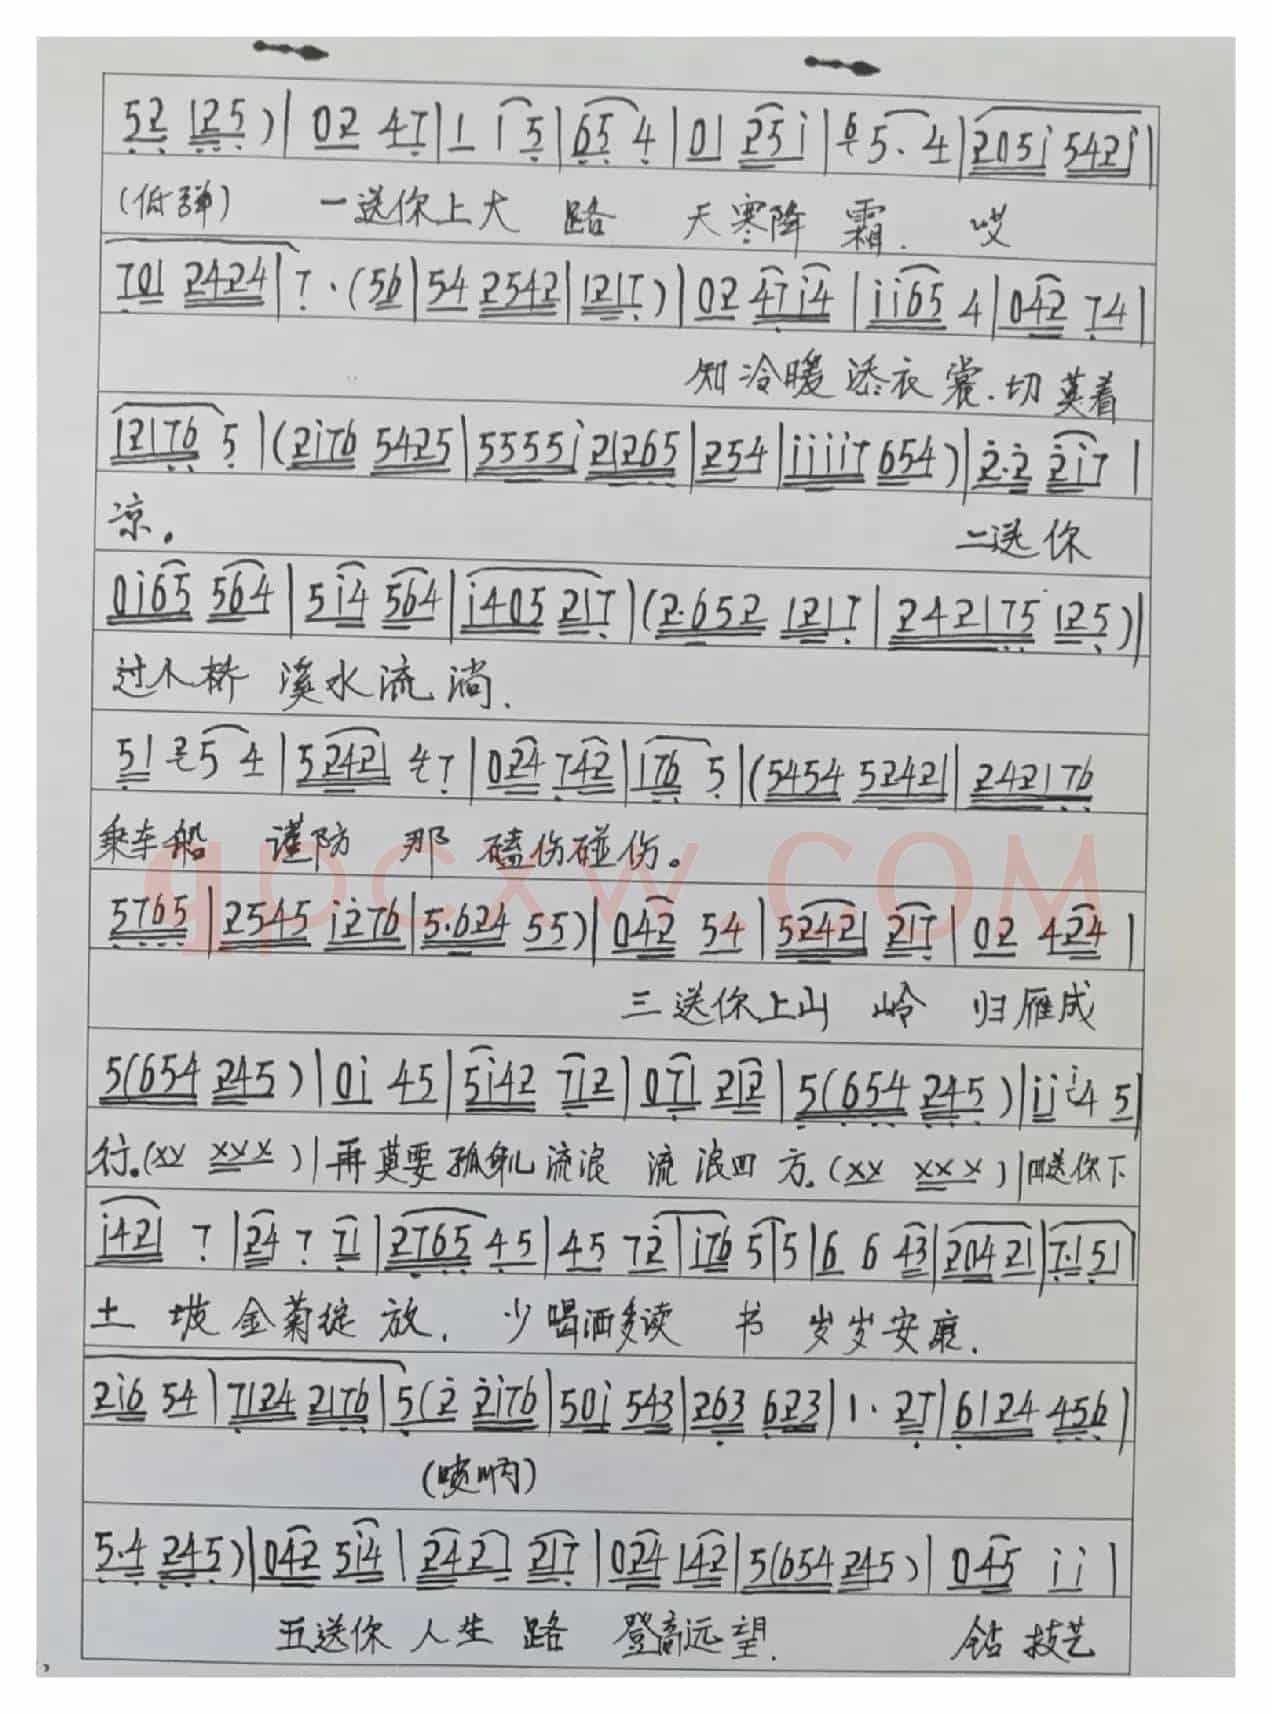 52 125)|02 47|1 i5|65 4|01 25i|65. 4|205i 542i|
(低弹) 一送你上大 路 天寒降 霜. 哎
701 2424|7·(56|54 2542|1217)|02 47i4|ii65 4|042 74|
知冷暖 添衣裳.切莫着
12176 5|(2i76 5425|5555i 21265|254|iiii7 654)|2·2 2i7|
凉。 二送你
0i65 564|5i4 564|i405 217|(2·652 1217|242175 125)|
过小桥 溪水流淌.
51 25 4|52421 47|024 742|176 5|(5454 52421|242176
乘车船 谨防 那 磕伤碰伤。
5765|2545 i276|5·624 55)|042 54|52421 217|02 424|
三送你上山 岭 归雁成
5(654 245)|0i 45|5i42 712|071 212|5(654 245)|ii i4 5|
行。(xx xxx)|再莫要孤身儿流浪 流浪四方。(xx xxx)|四送你下
i421 7|24 7 71|2765 45|45 72|i76 5|5|6 6 43|20421|7·151|
土 坡 金菊绽 放. 少喝酒多读 书 岁岁安康.
2i6 54|7124 2176|5(2 2i76|50i 543|263 623|1· 27|6124 456)
(唢呐)
5·4 245)|042 5i4|2427 217|024 142|5(654 245)|045 ii|
五送你人生 路 登高远望. 钻技艺
qpcxw.com